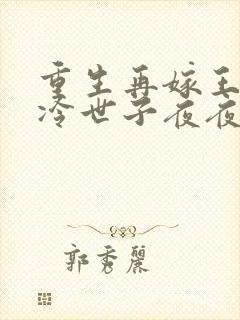 重生再嫁王
冷世子夜夜
郭秀麗